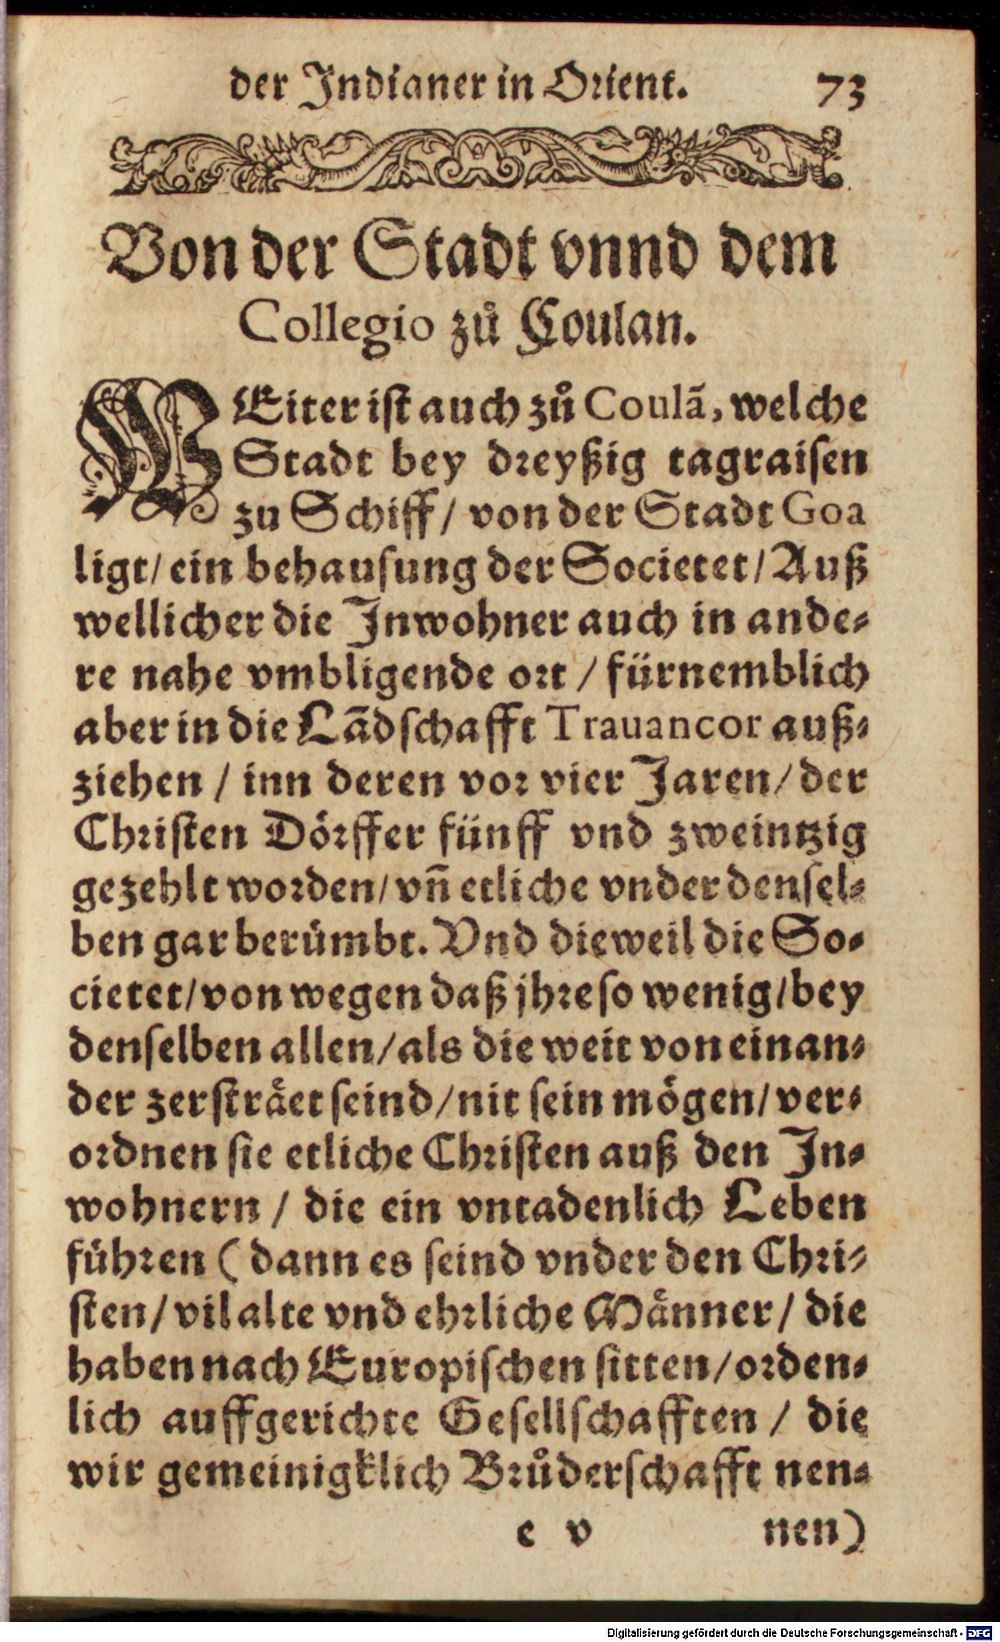 der Indianer in Orient. 73
Von der Stadt vnnd dem
Collegio zů Coulan.
WEiter ist auch zů Coulã, welche
Stadt bey dreyßig tagraisen
zu Schiff / von der Stadt Goa
ligt / ein behausung der Societet / Auß
wellicher die Inwohner auch in ande-
re nahe vmbligende ort / fürnemblich
aber in die Lãdschafft Trauancor auß-
ziehen / inn deren vor vier Jaren / der
Christen Dörffer fünff vnd zweintzig
gezehlt worden / vñ etliche vnder densel-
ben gar berümbt. Vnd dieweil die So-
cietet / von wegen daß jhre so wenig / bey
denselben allen / als die weit von einan-
der zersträet seind / nit sein mögen / ver-
ordnen sie etliche Christen auß den In-
wohnern / die ein vntadenlich Leben
führen (dann es seind vnder den Chri-
sten / vil alte vnd ehrliche Männer / die
haben nach Europischen sitten / orden-
lich auffgerichte Gesellschafften / die
wir gemeinigklich Brůderschafft nen-
e v nen)
Digitalisierung gefördert durch die Deutsche Forschungsgemeinschaft - DFG